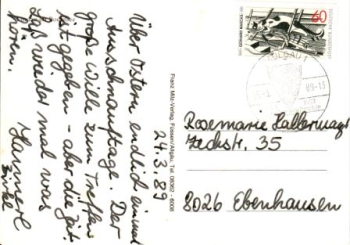 24.3.89
Über Ostern endlich einmal
Ausschnauftage. Der
große Wille zum Treffen
ist gegeben - aber die Zeit.
Laß wieder mal was
hören.
Hannerl
Franz Milz-Verlag, Füssen/Allgäu, Tel. 08362 - 6008
60
Rosemarie Hallermayr
Zechstr. 35
8026 Ebenhausen